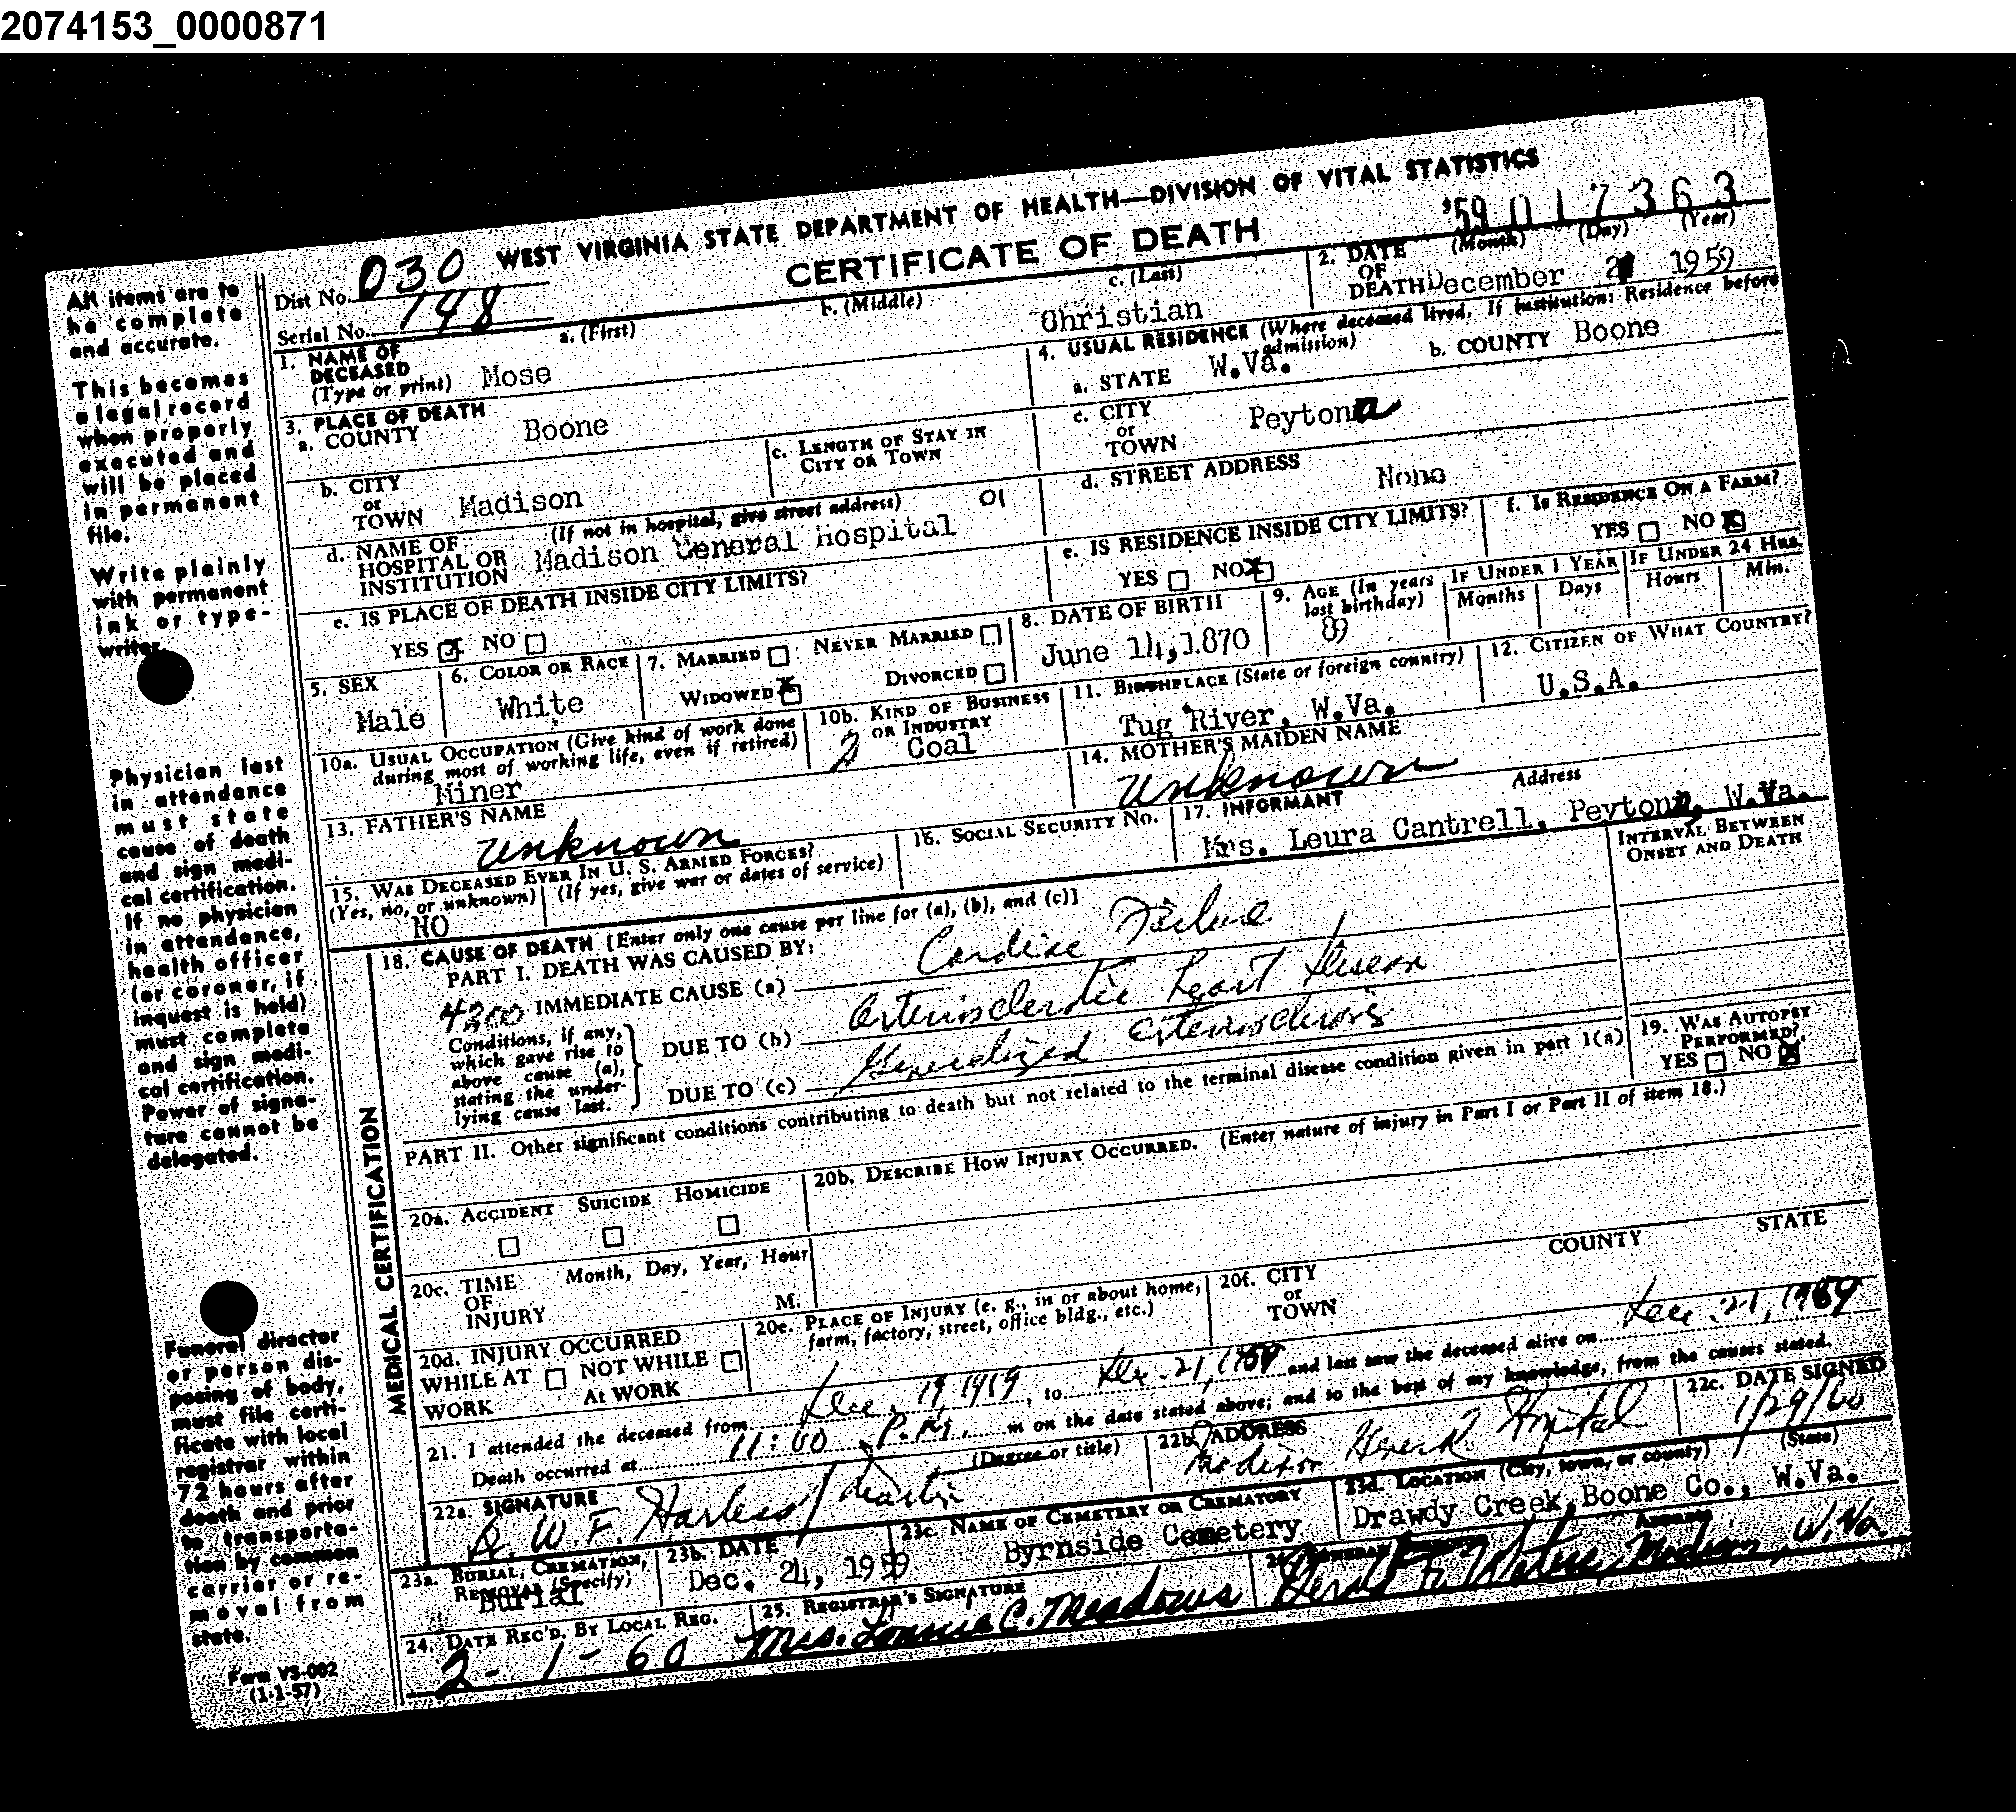 2074153_0000871
WEST VIRGINIA STATE DEPARTMENT OF HEALTH—DIVISION OF VITAL STATISTICS
CERTIFICATE OF DEATH
59 017363
Dist No. 030
Serial No. 148
1. NAME OF DECEASED (Type or print)
a. (First) Mose
b. (Middle)
c. (Last) Christian
2. DATE OF DEATH (Month) (Day) (Year)
December 21 1959
3. PLACE OF DEATH
a. COUNTY Boone
b. CITY or TOWN Madison
c. LENGTH OF STAY IN CITY OR TOWN
d. NAME OF HOSPITAL OR INSTITUTION (If not in hospital, give street address) 01
Madison General Hospital
e. IS PLACE OF DEATH INSIDE CITY LIMITS?
YES X NO
4. USUAL RESIDENCE (Where deceased lived. If institution: Residence before admission)
a. STATE W.Va.
b. COUNTY Boone
c. CITY or TOWN Peytona
d. STREET ADDRESS None
e. IS RESIDENCE INSIDE CITY LIMITS?
YES NO X
f. IS RESIDENCE ON A FARM?
YES NO X
5. SEX Male
6. COLOR OR RACE White
7. MARRIED NEVER MARRIED
WIDOWED X DIVORCED
8. DATE OF BIRTH June 14, 1870
9. AGE (In years last birthday) 89
IF UNDER 1 YEAR Months Days
IF UNDER 24 HRS. Hours Min.
10a. USUAL OCCUPATION (Give kind of work done during most of working life, even if retired)
Miner
10b. KIND OF BUSINESS OR INDUSTRY
2 Coal
11. BIRTHPLACE (State or foreign country)
Tug River, W.Va.
12. CITIZEN OF WHAT COUNTRY?
U.S.A.
13. FATHER'S NAME
Unknown
14. MOTHER'S MAIDEN NAME
Unknown
15. WAS DECEASED EVER IN U. S. ARMED FORCES?
(Yes, no, or unknown) (If yes, give war or dates of service)
NO
16. SOCIAL SECURITY NO.
17. INFORMANT Address
Mrs. Leura Cantrell, Peytona, W.Va.
MEDICAL CERTIFICATION
18. CAUSE OF DEATH [Enter only one cause per line for (a), (b), and (c)]
INTERVAL BETWEEN ONSET AND DEATH
PART I. DEATH WAS CAUSED BY:
4200 IMMEDIATE CAUSE (a) Cardiac Failure
Conditions, if any, which gave rise to above cause (a), stating the underlying cause last.
DUE TO (b) Arteriosclerotic Heart Disease
DUE TO (c) Generalized Arteriosclerosis
PART II. Other significant conditions contributing to death but not related to the terminal disease condition given in part I(a)
19. WAS AUTOPSY PERFORMED?
YES NO X
20a. ACCIDENT SUICIDE HOMICIDE
20b. DESCRIBE HOW INJURY OCCURRED. (Enter nature of injury in Part I or Part II of item 18.)
20c. TIME OF INJURY Month, Day, Year, Hour M.
20d. INJURY OCCURRED
WHILE AT WORK NOT WHILE AT WORK
20e. PLACE OF INJURY (e. g., in or about home, farm, factory, street, office bldg., etc.)
20f. CITY or TOWN COUNTY STATE
21. I attended the deceased from Dec. 19 1959, to Dec. 21, 1959 and last saw the deceased alive on Dec. 21, 1959
Death occurred at 11:00 P.M. m on the date stated above; and to the best of my knowledge, from the causes stated.
22a. SIGNATURE (Degree or title)
W. F. Harless
22b. ADDRESS
Madison General Hospital
22c. DATE SIGNED
1/29/60
23a. BURIAL, CREMATION, REMOVAL (Specify)
Burial
23b. DATE
Dec. 24, 1959
23c. NAME OF CEMETERY OR CREMATORY
Byrnside Cemetery
23d. LOCATION (City, town, or county) (State)
Drawdy Creek, Boone Co., W.Va.
24. DATE REC'D. BY LOCAL REG.
2-1-60
25. REGISTRAR'S SIGNATURE
Mrs. C. Meadows
Madison, W.Va
All items are to be complete and accurate.
This becomes a legal record when properly executed and will be placed in permanent file.
Write plainly with permanent ink or typewriter.
Physician last in attendance must state cause of death and sign medical certification. If no physician in attendance, health officer (or coroner, if inquest is held) must complete and sign medical certification. Power of signature cannot be delegated.
Funeral director or person disposing of body, must file certificate with local registrar within 72 hours after death and prior to transportation by common carrier or removal from state.
Form VS-002
(1-1-57)